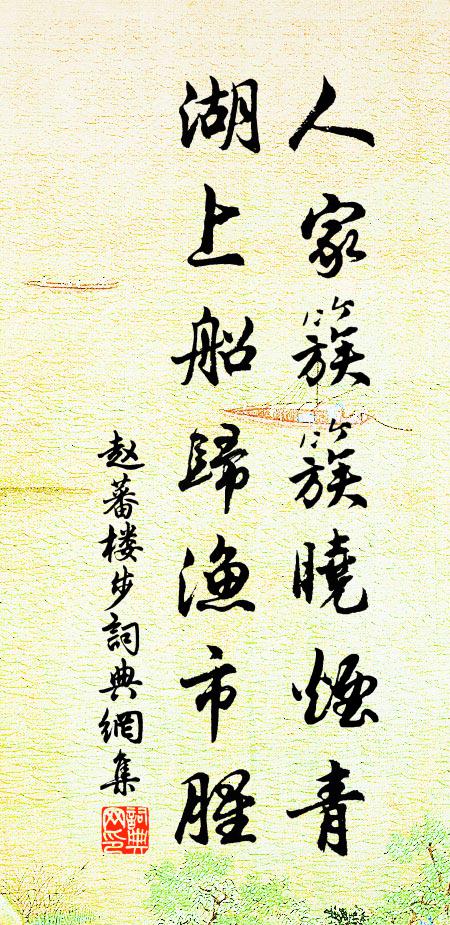 人家簇簇曉煙青
湖上船歸漁市腥
赵蕃楼步詞典網集
詞典网印